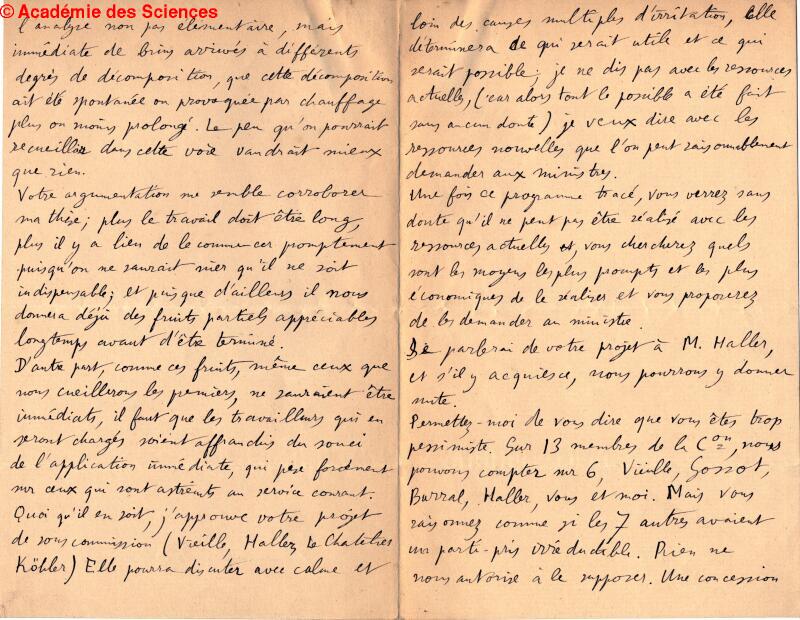 © Académie des Sciences
l'analyse non pas élémentaire, mais
immédiate de brins arrivés à différents
degrés de décomposition, que cette décomposition
ait été spontanée ou provoquée par chauffage
plus ou moins prolongé. Le peu qu'on pourrait
recueillir dans cette voie vaudrait mieux
que rien.
Votre argumentation me semble corroborer
ma thèse; plus le travail doit être long,
plus il y a lieu de le commencer promptement
puisqu'on ne saurait nier qu'il ne soit
indispensable; et puisque d'ailleurs il nous
donnera déjà des fruits partiels appréciables
longtemps avant d'être terminé.
D'autre part, comme ces fruits, même ceux que
nous cueillerons les premiers, ne sauraient être
immédiats, il faut que les travailleurs qui en
seront chargés soient affranchis du souci
de l'application immédiate, qui pèse forcément
sur ceux qui sont astreints au service courant.
Quoi qu'il en soit, j'approuve votre projet
de sous commission (Vieille, Haller, Le Chatelier
Köhler) Elle pourra discuter avec calme et
loin des causes multiples d'irritation, Elle
déterminera ce qui serait utile et ce qui
serait possible; je ne dis pas avec les ressources
actuelles, (car alors tout le possible a été fait
sans aucun doute) je veux dire avec les
ressources nouvelles que l'on peut raisonnablement
demander aux ministres.
Une fois ce programme tracé, vous verrez sans
doute qu'il ne peut pas être réalisé avec les
ressources actuelles et, vous chercherez quels
sont les moyens les plus prompts et les plus
économiques de le réaliser et vous proposerez
de les demander au ministre.
Je parlerai de votre projet à M. Haller,
et s'il y acquiesce, nous pourrons y donner
suite.
Permettez-moi de vous dire que vous êtes trop
pessimiste. Sur 13 membres de la Con, nous
pouvons compter sur 6, Vieille, Gossot,
Barral, Haller, vous et moi. Mais vous
raisonnez comme si les 7 autres avaient
un parti-pris irréductible. Rien ne
nous autorise à le supposer. Une concession